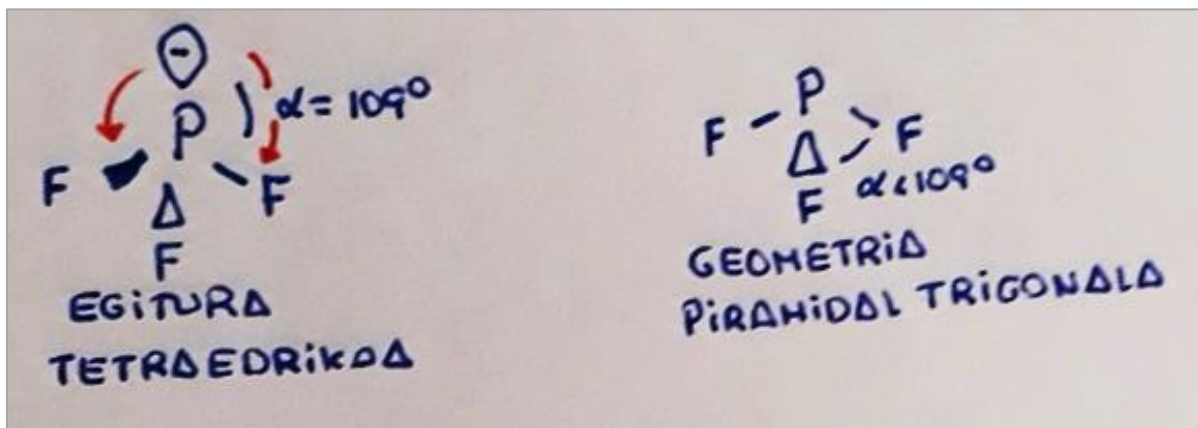 P
α = 109°
F
F
F
EGITURA
TETRAEDRIKOA
P
F
F
F
α < 109°
GEOMETRIA
PIRAMIDAL TRIGONALA